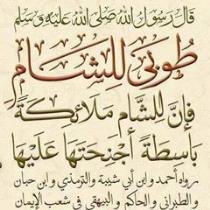 قَالَ رَسُولُ اللهِ صَلَّى اللهُ عَلَيْهِ وَسَلَّم
طُوبَى لِلشَّامِ
فَإِنَّ لِلشَّامِ مَلَائِكَةً
بَاسِطَةً أَجْنِحَتَهَا عَلَيْهَا
رواه أحمد وابن أبي شيبة والترمذي وابن حبان
والطبراني والحاكم والبيهقي في شعب الإيمان